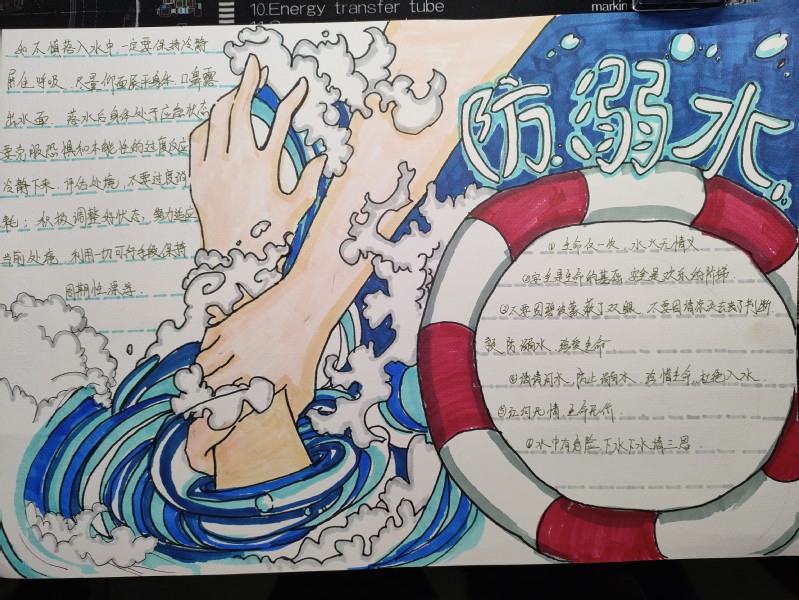 10.Energy transfer tube
markin
防溺水
如不慎落入水中,一定要保持冷静
屏住呼吸,尽量仰面展平身体,口鼻露
出水面,落水后身体处于应急状态
要克服恐惧和本能性的过度反应
冷静下来,评估处境,不要过度消
耗;积极调整好状态,努力适应
当前处境,利用一切可行手段保持
①生命仅一次,水火无情义
②安全是生命的基石,安全是欢乐的阶梯.
③不要因碧波蒙蔽了双眼,不要因情浓失去了判断
防溺水
④谈情问水,防止溺水,珍惜生命,杜绝入水.
⑤江河无情,生命无价.
⑥水中有危险,下水下水悔三思.